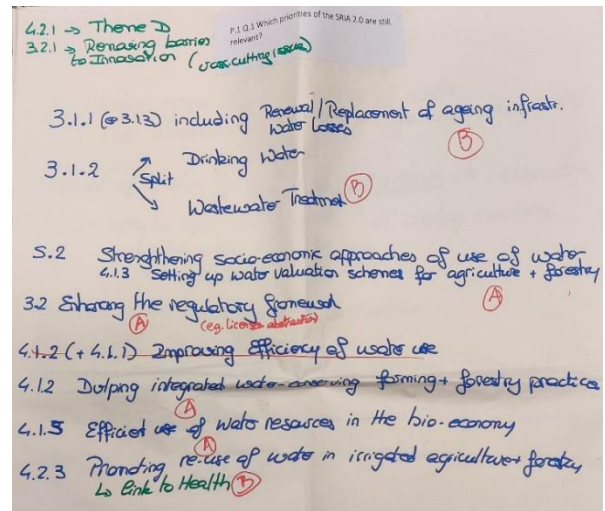 4.2.1 → Theme D
P.1 Q.1 Which priorities of the SRIA 2.0 are still
relevant?
3.2.1 → Removing barriers
to Innovation (crosscutting issue)
3.1.1 (+ 3.1.3) including Renewal/Replacement of ageing infrastr.
Water Losses
B
3.1.2 Split Drinking Water
Wastewater Treatment B
5.2 Strenghthening socio-economic approaches of use of water
4.1.3 Setting up water valuation schemes for agriculture + forestry
A
3.2 Enhancing the regulatory framework
A (eg. License abstraction)
4.1.2 (+ 4.1.1) Improving efficiency of water use
4.1.2 integrated water-conserving farming + forestry practices
A
4.1.5 Efficient use of water resources in the bio-economy
A
4.2.3 Promoting re-use of water in irrigated agriculture + forestry
↳ link to Health B